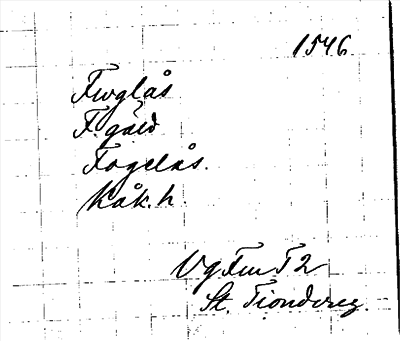 1546
Fwglås
F. gård
Fogelås.
Kåk. h.
Vg. Fin. T 2
St. Tiondereg.